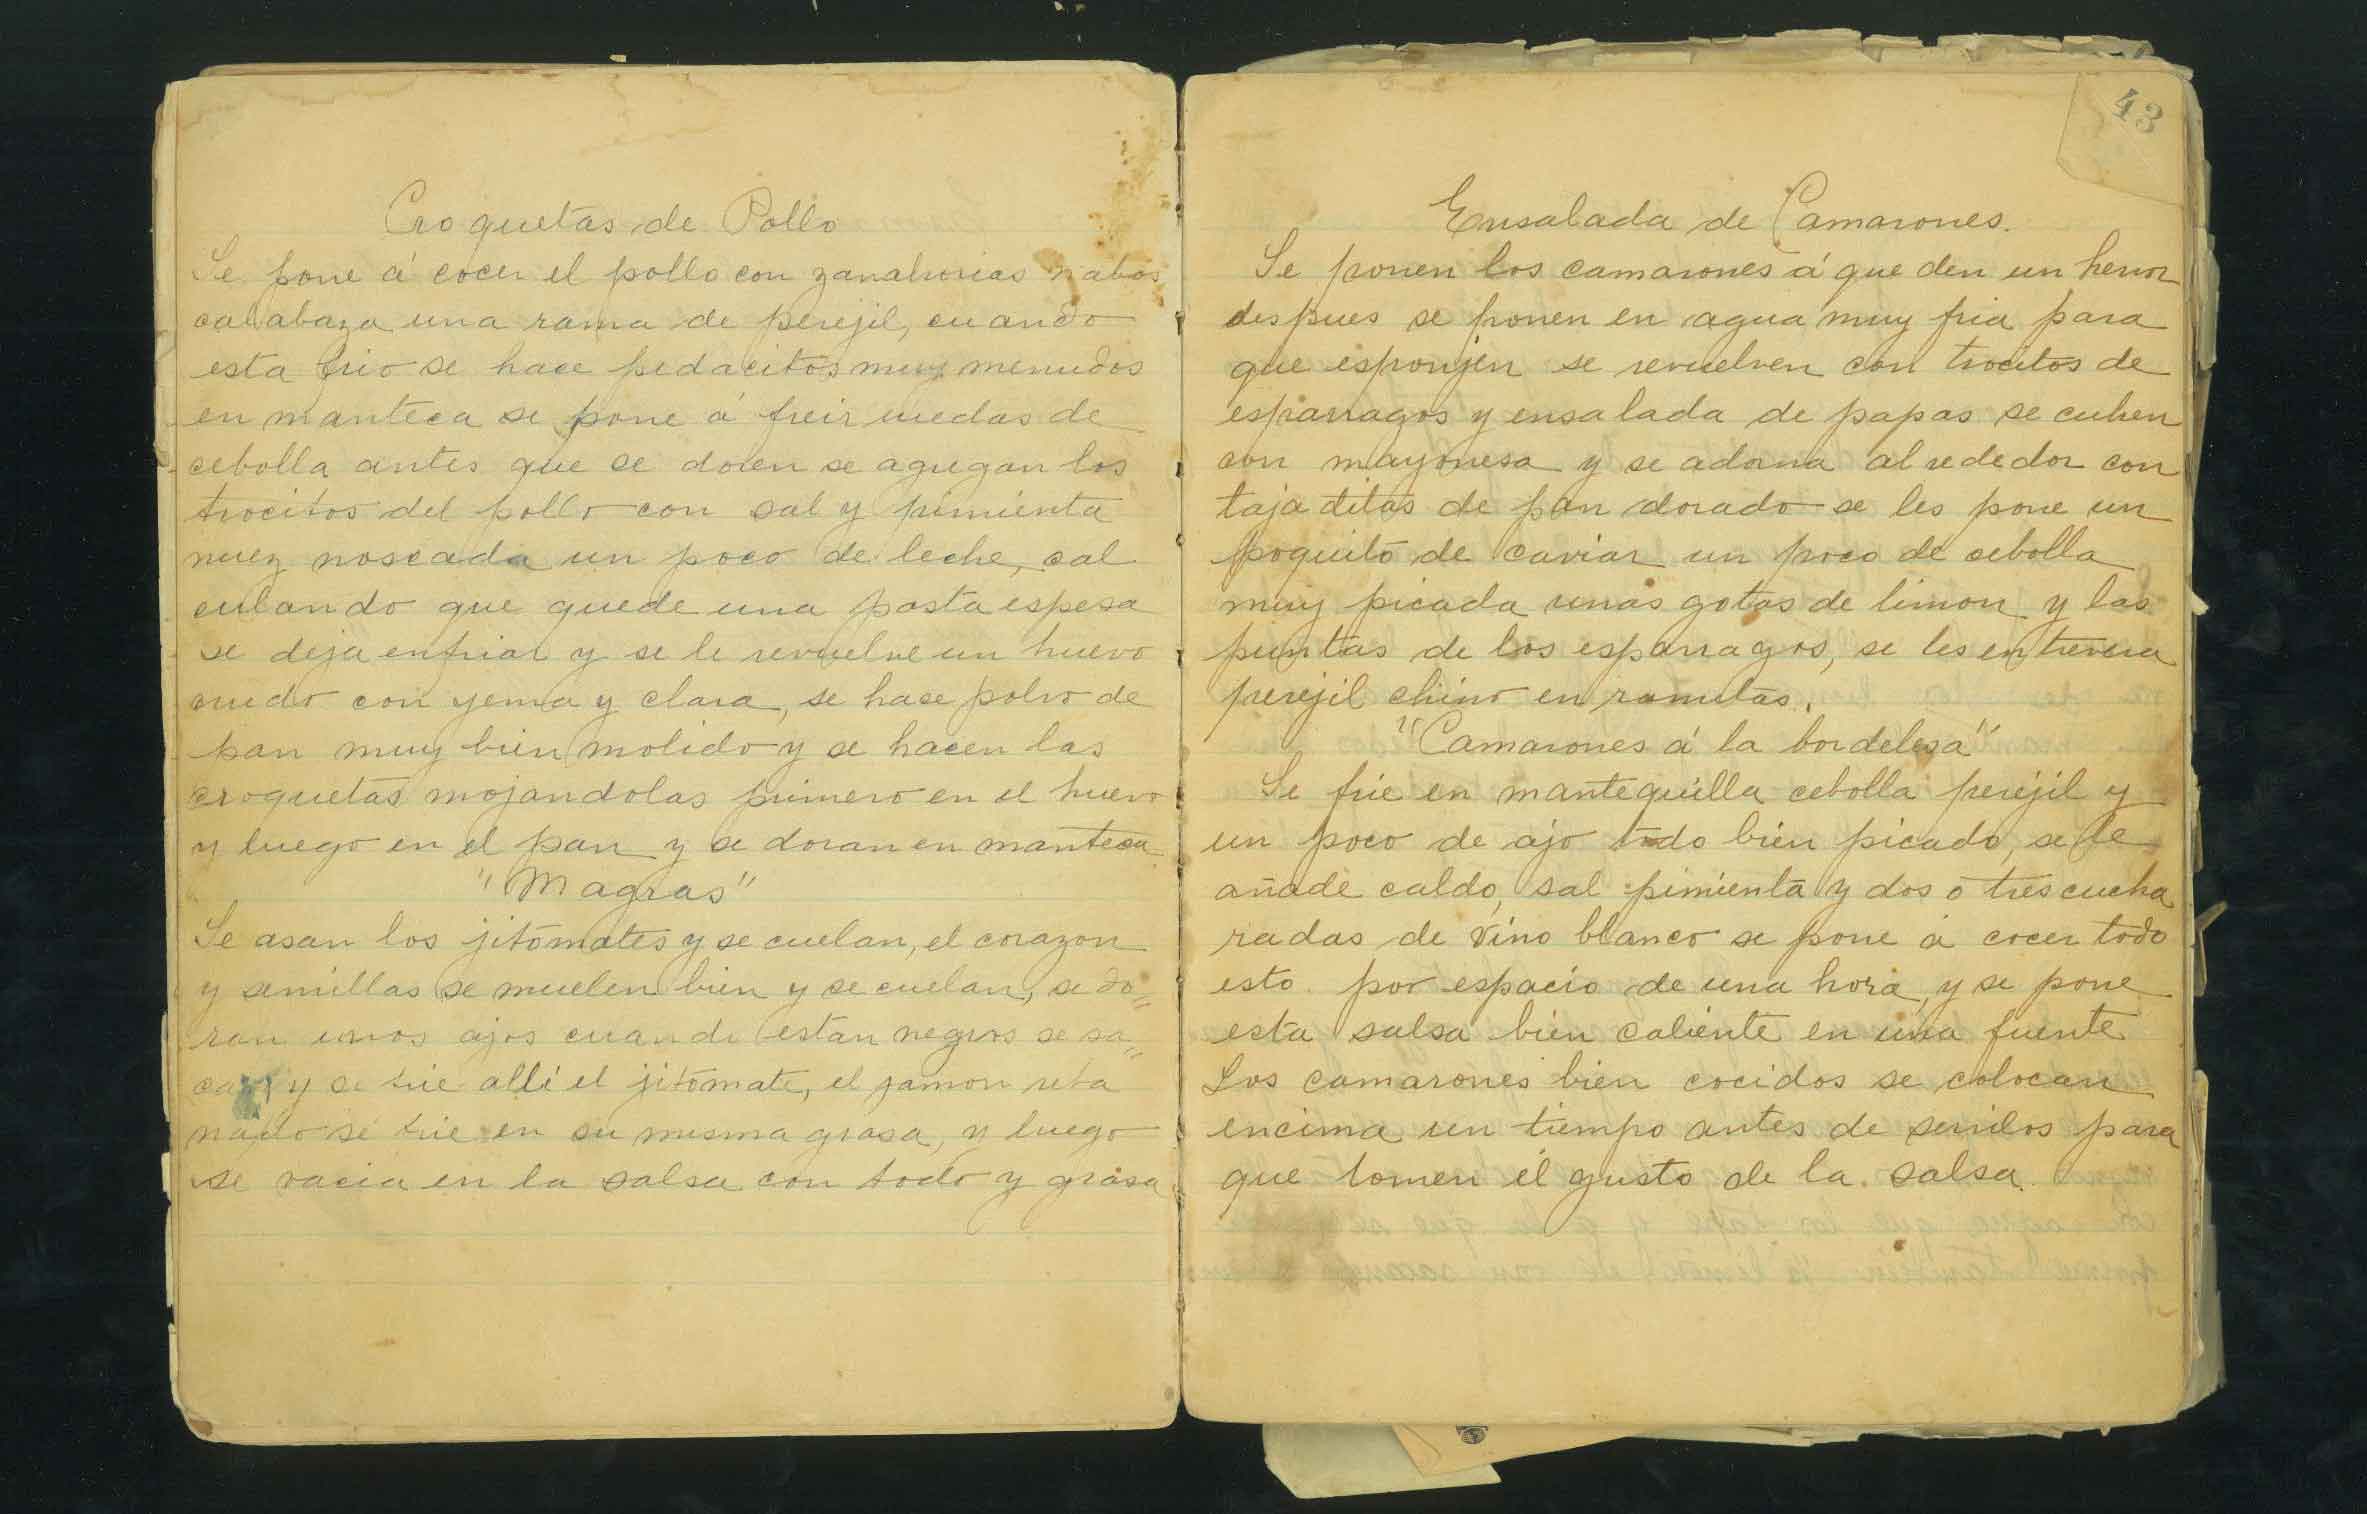 Croquetas de Pollo
Se pone á cocer el pollo con zanahorias nabos
calabaza una rama de perejil, cuando
esta frio se hace pedacitos muy menudos
en manteca se pone á freir ruedas de
cebolla antes que se doren se agregan los
trocitos del pollo con sal y pimienta
nuez noscada un poco de leche, cal
culando que quede una pasta espesa
se deja enfriar y se le revuelve un huevo
crudo con yema y clara, se hace polvo de
pan muy bien molido y se hacen las
croquetas mojandolas primero en el huevo
y luego en el pan y se doran en manteca
"Magras"
Se asan los jitomates y se cuelan, el corazon
y semillas se muelen bien y se cuelan, se do=
ran unos ajos cuando estan negros se sa=
can y se frie alli el jitomate, el jamon reba
nado se frie en su misma grasa, y luego
se vacia en la salsa con todo y grasa
43
Ensalada de Camarones.
Se ponen los camarones á que den un hervor
despues se ponen en agua muy fria para
que esponjen se revuelven con trocitos de
esparragos y ensalada de papas se cubren
con mayonesa y se adorna alrededor con
tajaditas de pan dorado se les pone un
poquito de caviar un poco de cebolla
muy picada unas gotas de limon y las
puntas de los esparragos, se les entrevera
perejil chino en ramitas.
"Camarones á la bordelesa"
Se frie en mantequilla cebolla perejil y
un poco de ajo todo bien picado, se le
añade caldo, sal pimienta y dos o tres cucha
radas de vino blanco se pone á cocer todo
esto por espacio de una hora, y se pone
esta salsa bien caliente en una fuente
Los camarones bien cocidos se colocan
encima un tiempo antes de servilos para
que tomen el gusto de la salsa.